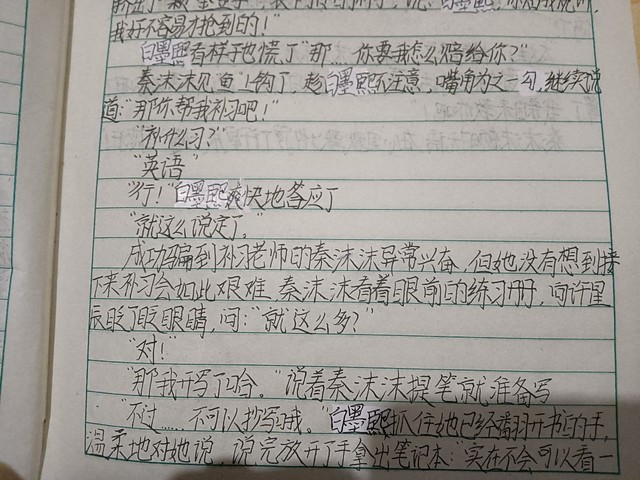 我好不容易才抢到的！"
白墨熙看样子也慌了"那……你要我怎么赔给你？"
秦沫沫见鱼上钩了，趁白墨熙不注意，嘴角为之一勾，继续说
道："那你帮我补习吧！"
"补什么习？"
"英语"
"行！"白墨熙爽快地答应了
"就这么说定了。"
成功骗到补习老师的秦沫沫异常兴奋，但她没有想到接
下来补习会如此艰难，秦沫沫看着眼前的练习册，向许星
辰眨了眨眼睛，问："就这么多？"
"对！"
"那我开写了哈。"说着秦沫沫提笔就准备写
"不过……不可以抄写哦。"白墨熙抓住她已经翻开书的手，
温柔地对她说，说完放开了手拿出笔记本："实在不会可以看一